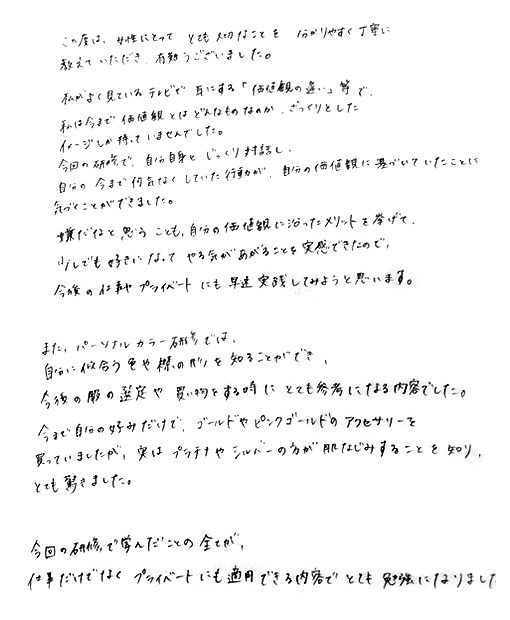 この度は、女性にとって とても大切なことを 分かりやすく丁寧に
教えていただき、有難うございました。
私がよく見ているテレビで 耳にする「価値観の違い」等で、
私は今まで価値観とはどんなものなのか、ざっくりとした
イメージしか持っていませんでした。
今回の研修で、自分自身と じっくり対話し、
自分の 今まで何気なくしていた行動が、自分の価値観に基づいていたことに
気づくことができました。
嫌だなと思うことも、自分の価値観に沿ったメリットを挙げて、
少しでも好きになって やる気があがることを実感できたので、
今後の仕事やプライベートにも早速実践してみようと思います。
また、パーソナルカラー研修では、
自分に似合う色や襟の形を知ることができ、
今後の服の選定や買い物をする時に とても参考になる内容でした。
今まで自分の好みだけで、ゴールドやピンクゴールドのアクセサリーを
買っていましたが、実は プラチナやシルバーの方が肌なじみすることを知り、
とても驚きました。
今回の研修で学んだことの全てが、
仕事だけでなく プライベートにも適用できる内容で とても 勉強になりました